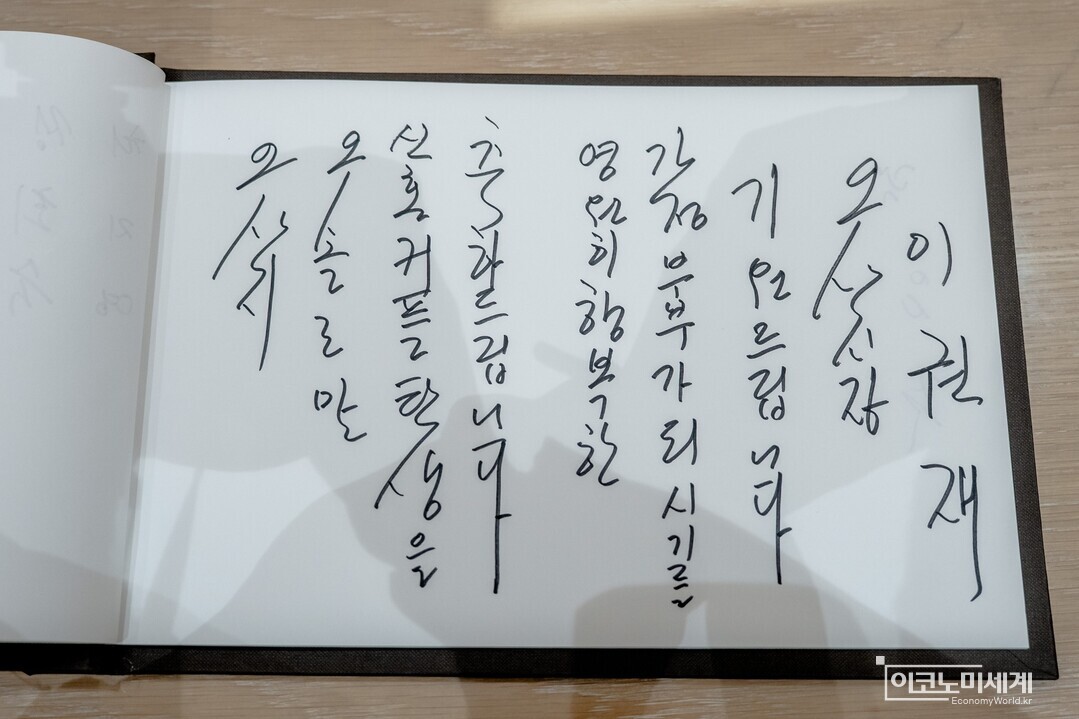 오산시
오솔로말
신혼커플탄생을
축하드립니다
영원히행복한
가정부부가되시기를
기원드립니다
오산시장
이권재
이코노미세계
EconomyWorld.kr